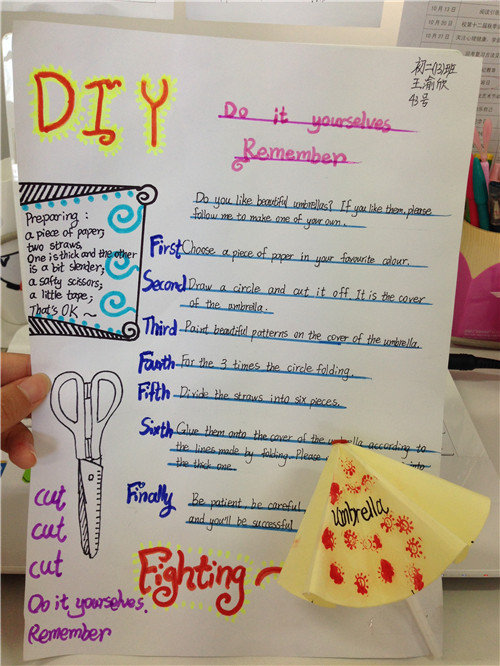 初二(13)班
王渝欣
43号
DIY
Do it yourselves
Remember
Preparing:
a piece of paper;
two straws,
One is thick and the other
is a bit slender;
a safty scissors;
a little tape;
That's OK ~
Do you like beautiful umbrellas? If you like them, please
follow me to make one of your own.
First Choose a piece of paper in your favourite colour.
Second Draw a circle and cut it off. It is the cover
of the umbrella.
Third Paint beautiful patterns on the cover of the umbrella.
Fourth For the 3 times the circle folding.
Fifth Divide the straws into six pieces.
Sixth Glue them onto the cover of the umbrella according to
the lines made by folding. Please
the thick one.
Finally Be patient, be careful
and you'll be successful
umbrella
cut
cut
cut
Do it yourselves.
Remember
Fighting ~
10月13日
10月20日
10月27日